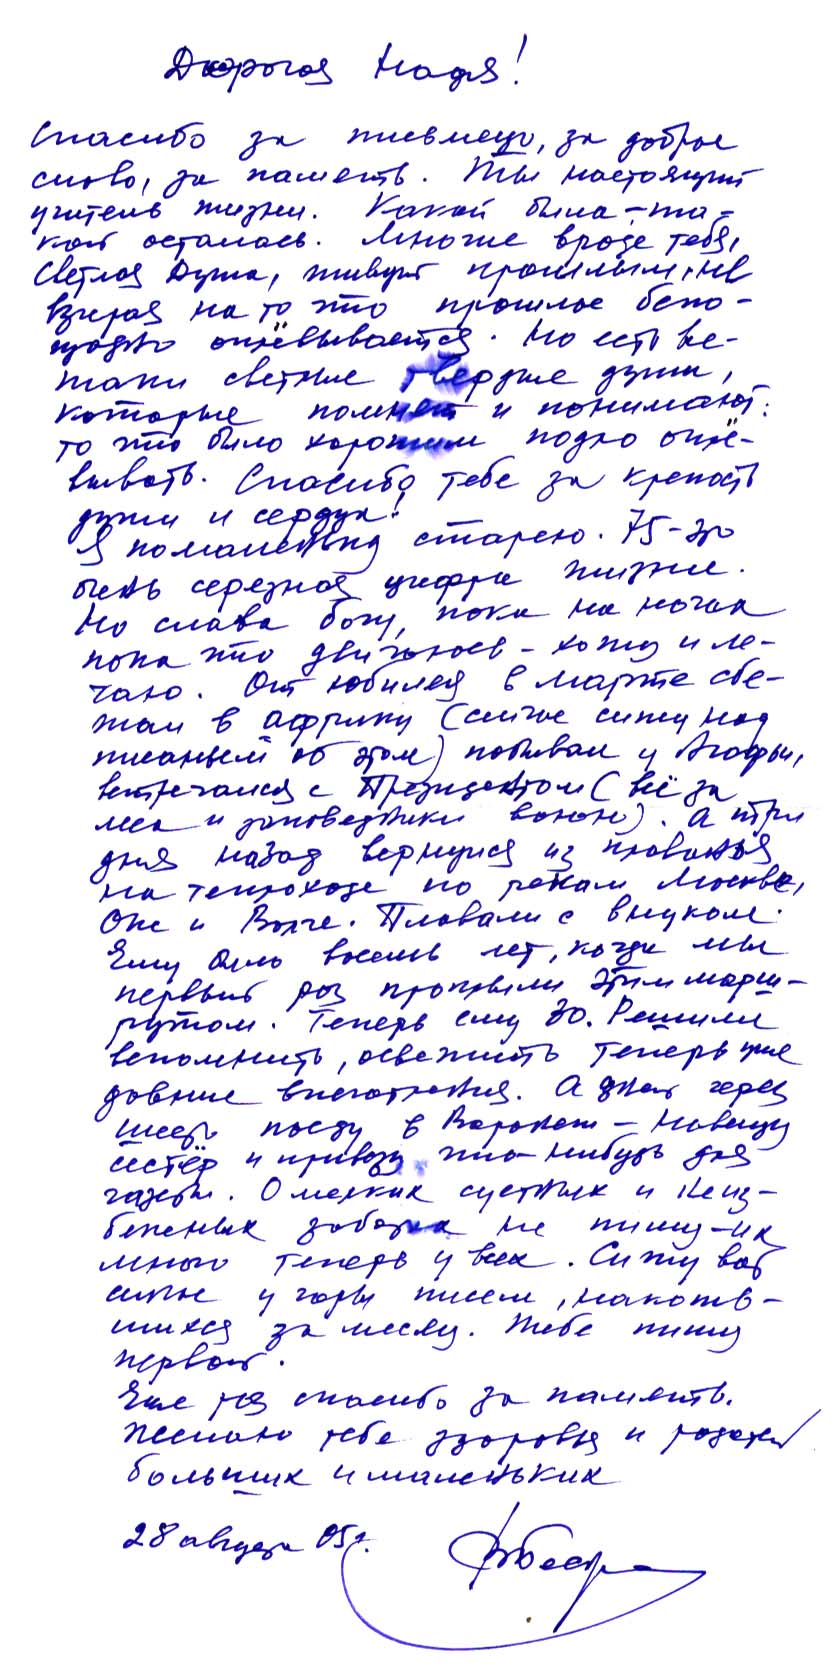 Дорогая Надя!
Спасибо за письмецо, за доброе
слово, за память. Ты настоящий
учитель жизни. Какой была – та-
кой осталась. Многие вроде тебя,
светлая душа, живут прошлым, не
взирая на то что прошлое беспо-
щадно оплёвывается. Но есть все-
таки светлые твердые души,
которые помнят и понимают:
то что было хорошим подло оплё-
вывать. Спасибо тебе за крепость
души и сердца!
Я помаленьку старею. 75 – это
очень серезная цифра жизни.
Но слава богу, пока на ногах
пока что двигаюсь – хожу и ле-
таю. От юбилея в марте сбе-
жал в Африку (сейчас сижу над
писаньем об этом) побывал у Агафьи,
встречался с Президентом (всё за
леса и заповедники воюю). А три
дня назад вернулся из плаванья
на теплоходе по рекам Москве,
Оке и Волге. Плавали с внуком.
Ему было восемь лет, когда мы
первый раз проплыли этим марш-
рутом. Теперь ему 30. Решили
вспомнить, освежить теперь уже
давние впечатления. А дней через
шесть поеду в Воронеж – навещу
сестёр и привезу что-нибудь для
газеты. О мелких суетных и неиз-
бежных заботах не пишу – их
много теперь у всех. Сижу вот
сейчас у горы писем, накопив-
шихся за месяц. Тебе пишу
первой.
Еще раз спасибо за память.
Желаю тебе здоровья и радостей
больших и маленьких
28 августа 05 г.